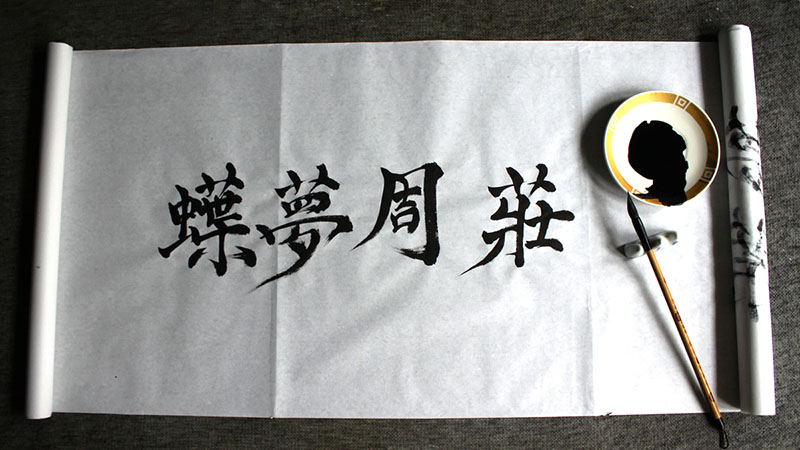 莊周夢蝶